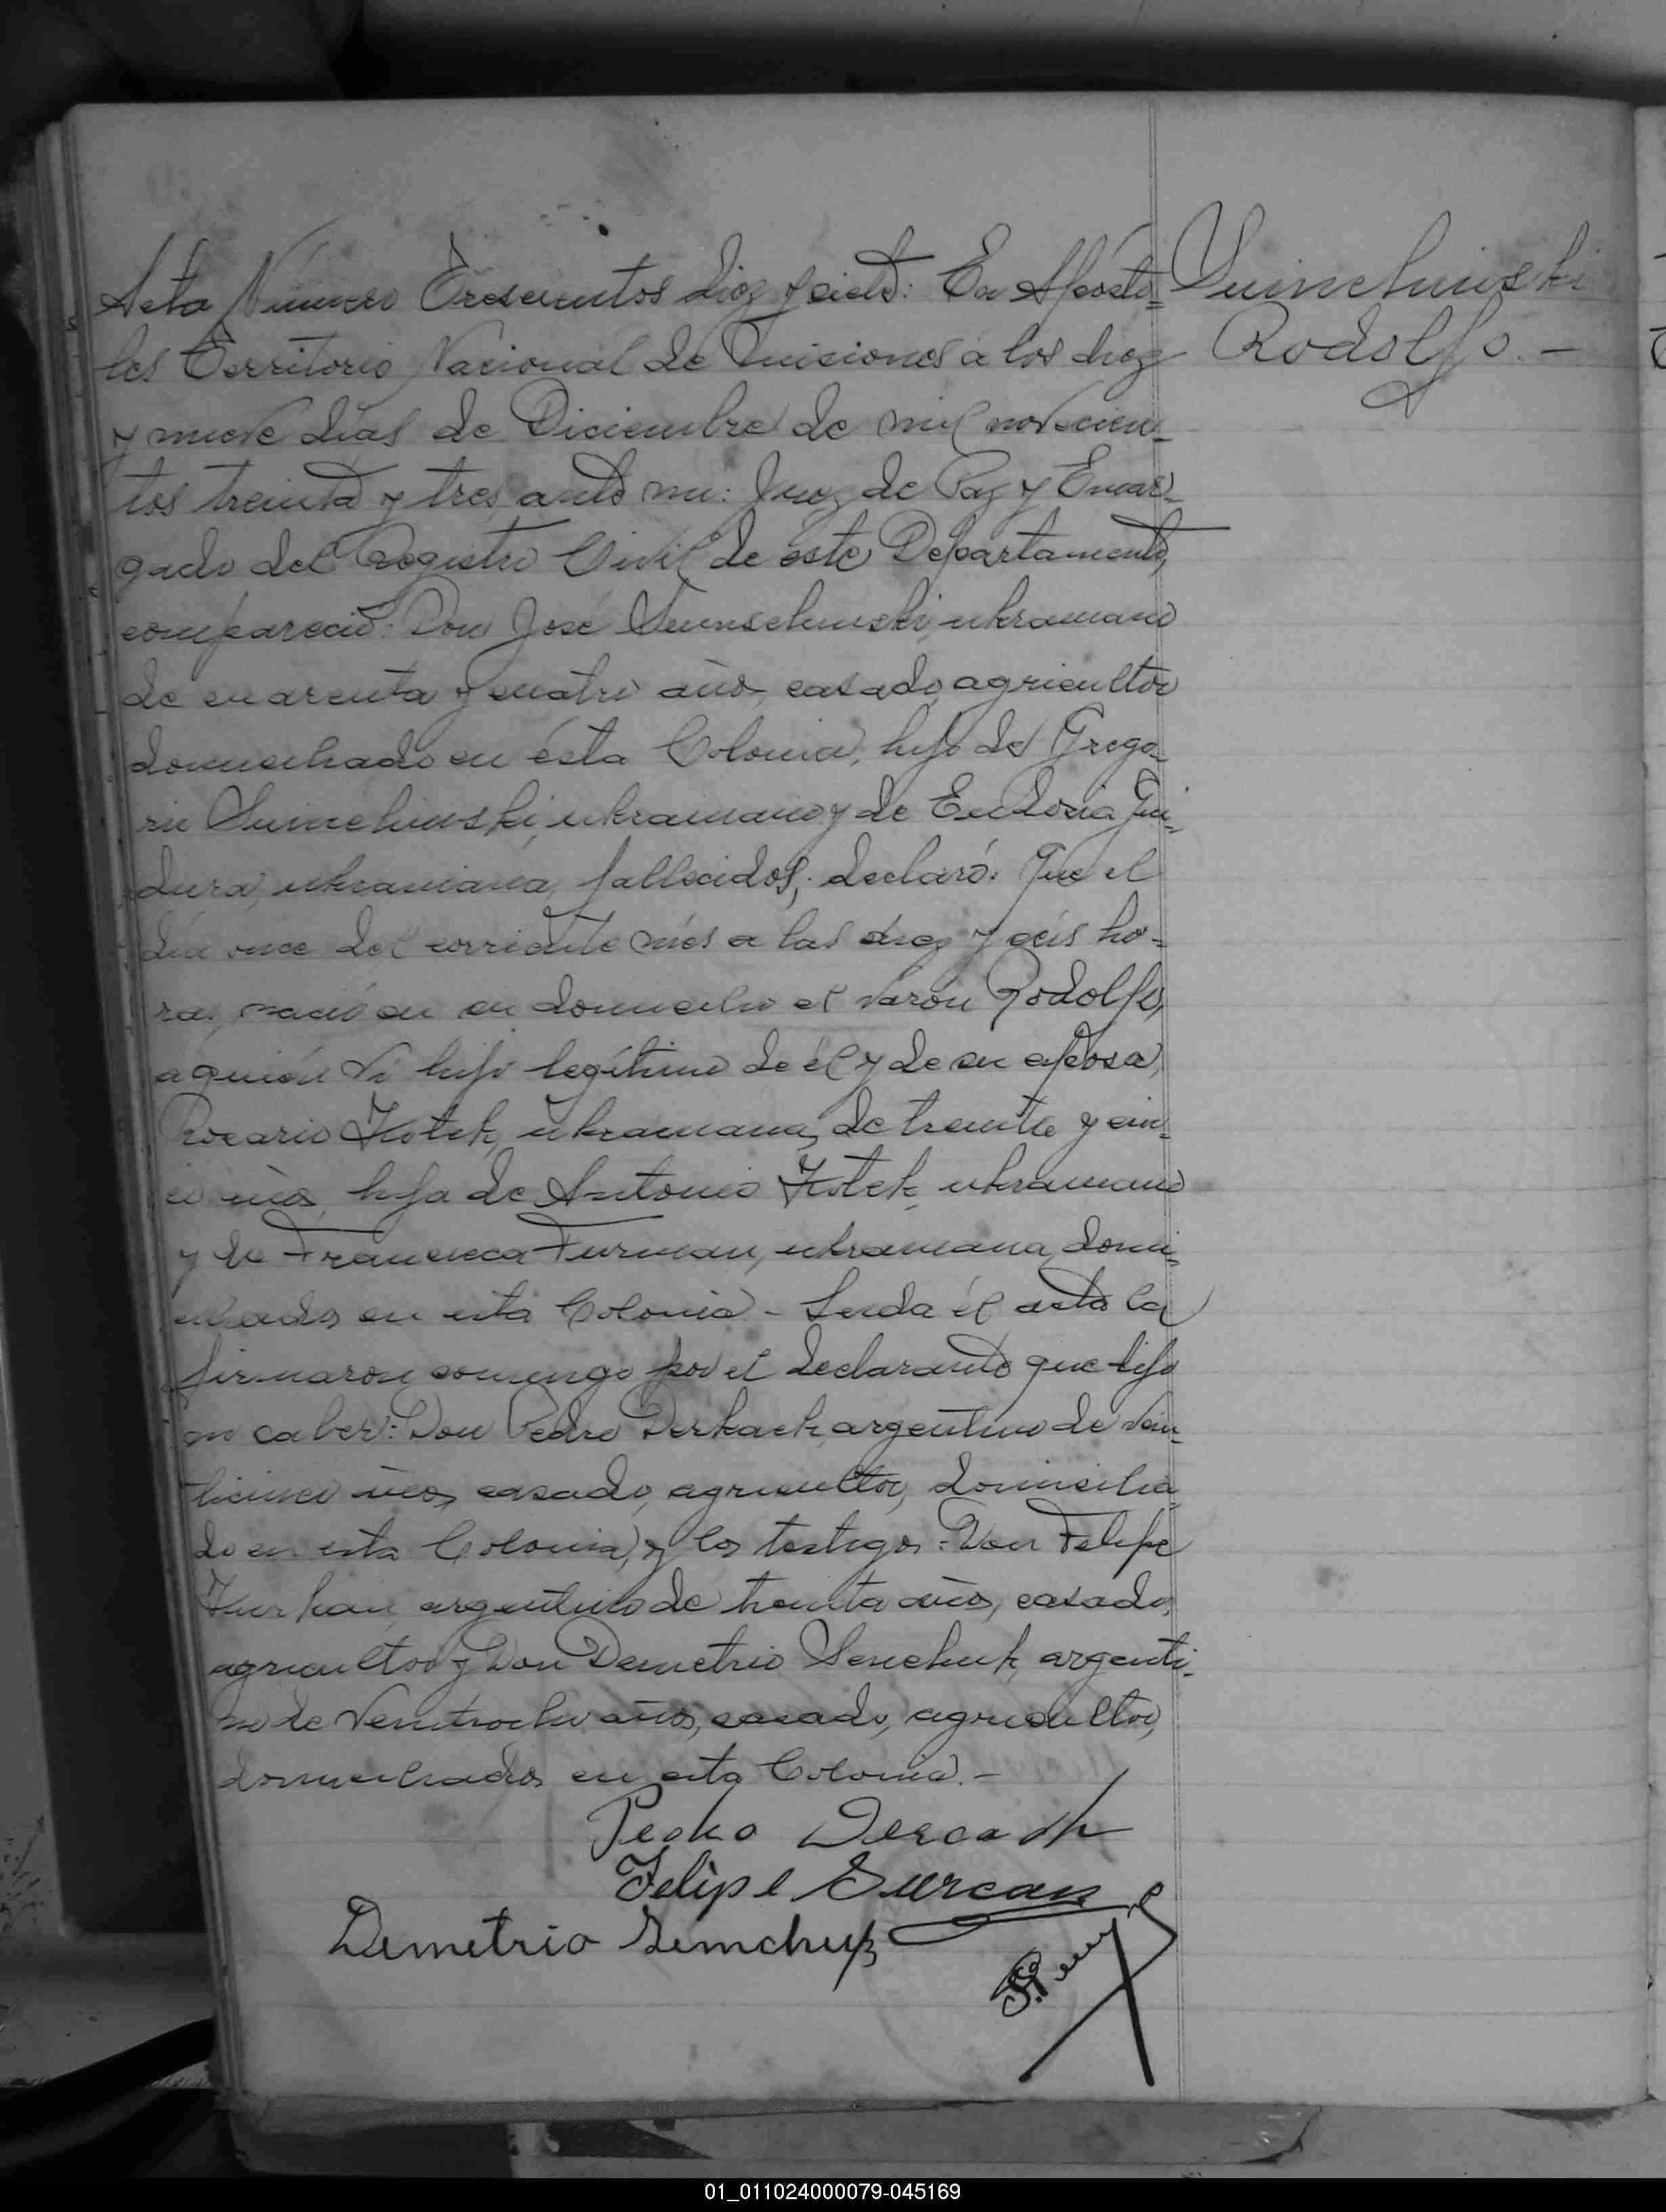 Acta Número Trescientos diez y siete: En Apósto=
les Territorio Nacional de Misiones a los diez
y nueve días de Diciembre de mil novecien=
tos treinta y tres, ante mi: Juez de Paz y Encar=
gado del Registro Civil de este Departamento,
compareció: Don José ukraniano
de cuarenta y cuatro años, casado, agricultor
domiciliado en ésta Colonia, hijo de Grego=
rio ukraniano y de Eudosia
ukraniana, fallecidos; declaró: Que el
día once del corriente més a las diez y seis ho=
ras, nació en su domicilio el varón Rodolfo,
a quien vi hijo legítimo de él y de su esposa,
Rosario Kotek, ukraniana, de treinta y cin=
co años, hija de Antonio Kotek, ukraniano
y de Francisca Furman, ukraniana, domi=
ciliados en esta Colonia - Leida él acta la
firmaron conmigo por el declarante que dijo
no saber: Don Pedro Derkach, argentino de vein=
ticinco años, casado, agricultor, domicilia=
do en esta Colonia, y los testigos: Don Felipe
argentino de treinta años, casado,
agricultor y Don Demetrio Semchuk, argenti=
no de veintiocho años, casado, agricultor,
domiciliados en esta Colonia.-
Rodolfo.-
Pedro Dercach
Felipe Surcan
Demetrio Semchuk
01_011024000079-045169